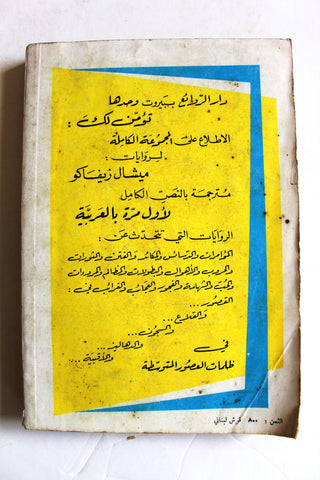 دار الروائع ببيروت وحدها
تؤمن لك :
الاطلاع على المجموعة الكاملة
لروايات :
ميشال زيفاكو
مترجمة بالنص الكامل
لأول مرة بالعربية
الروايات التي تتحدث عن :
المؤامرات والدسائس والمكائد والفتن والثورات
والحروب والأهوال والبطولات والمظالم والمروءات
والحب والشهامة والفجور والعجائب والغرائب في :
القصور ...
والقلاع ...
والسجون ...
والدهاليز ...
والأقبية ..
في
ظلمات العصور المتوسطة
الثمن : ٨٠٠ قرش لبناني